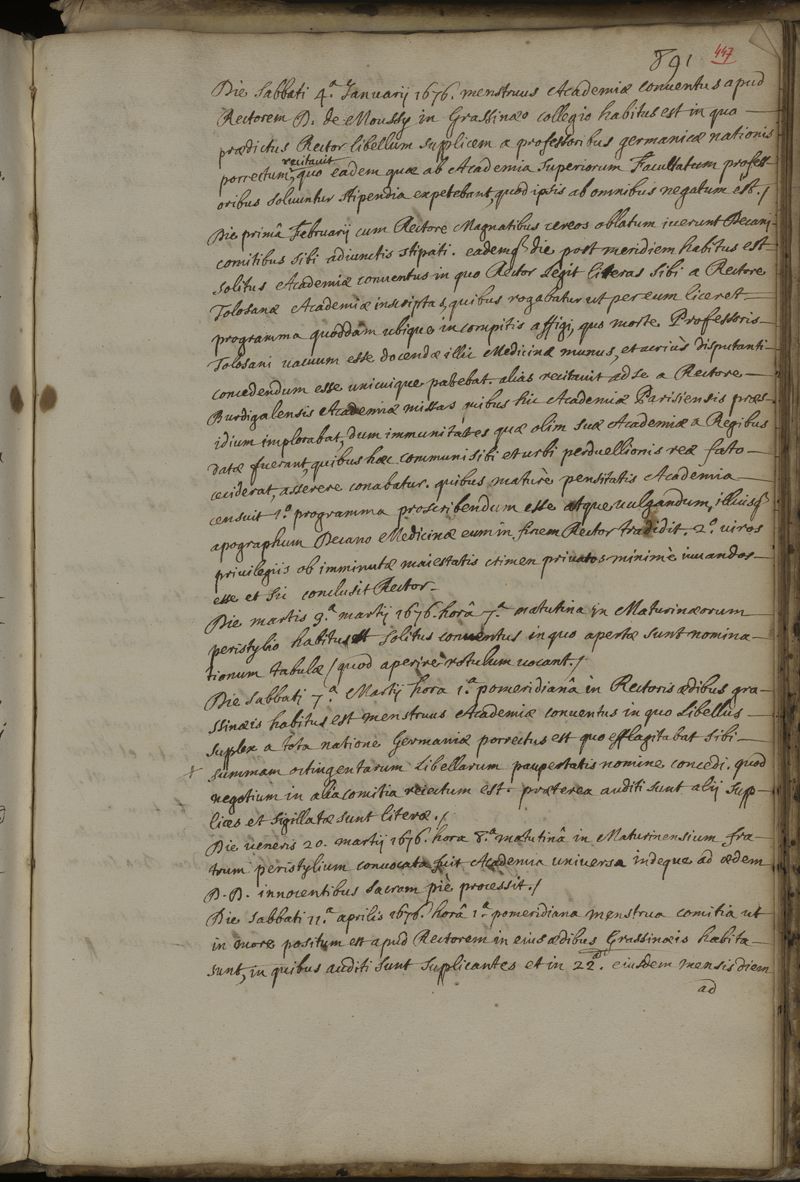 891 447
Die Sabbati 4.a Ianuarij 1676. menstruus Academiæ conventus apud
Rectorem D. de Moussy in Grassinæo collegio habitus est in quo
prædictus Rector libellum supplicem a professoribus germanicæ nationis
recitavit
porrectum, quo eadem quæ ab Academia Superiorum Facultatum profess-
oribus solvuntur stipendia expetebant, quod ipsis ab omnibus negatum est. /
Die primâ Februarij cum Rectore Magnatibus cereos oblatum iverunt Decani
comitibus sibi adiunctis stipati. eademq die post meridiem habitus est
solitus Academiæ conventus in quo Rector Legit literas sibi a Rectore
Tolosanæ Academiæ inscriptas, quibus rogabatur ut per eum liceret
programma quoddam ubique in compitis affigi, quo morte Professoris
Tolosani vacuum esse docendæ illic Medicinæ munus, et acriùs disputanti
concedendum esse unicuique patebat. alias recitavit ad se a Rectore
Burdigalensis Academiæ missas quibus hic Academiæ Parisiensis præs-
idium implorabat, dum immunitates quæ olim suæ Academiæ a Regibus
datæ fuerant, quibus hæc communi sibi et urbi perduellionis reæ fato
ceciderat, asserere conabatur. quibus maturè pensitatis Academia
censuit 1.o programma proscribendum esse atque vulgandum, illiusq
apographum Decano Medicinæ eum in finem Rector tradidit. 2.o viros
privilegiis ob imminutæ maiestatis crimen privatos minimè iuvandos
esse et sic conclusit Rector.
Die martis 9.a martij 1676. horâ 7.a matutina in Maturinæorum
peristylio habitus est solitus conventus in quo apertæ sunt nomina-
tionum tabulæ / quod aperire rotulum vocant. /
Die Sabbati 7.a Martij hora 1.a pomeridianâ in Rectoris ædibus gra-
ssinæis habitus est menstruus Academiæ conventus in quo Libellus
supplex a tota natione Germaniæ porrectus est quo efflagitabat sibi
summam octingentarum Libellarum paupertatis nomine concedi. quod
negotium in alia comitia reiectum est. præterea auditi sunt alij supp-
lices et sigillatæ sunt literæ. /
Die veneris 20. martij 1676. hora 8.a matutinâ in Maturinensium fra-
trum peristylium convocata fuit Academia universa indeque ad ædem
D. D. innocentibus sacram piè processit. /
Die Sabbati 11.a aprilis 1676. horâ 1.a pomeridiana menstrua comitia ut
in more positum est apud Rectorem in eius ædibus Grassinæis habita
sunt, in quibus auditi sunt supplicantes et in 22. eiusdem mensis diem
ad